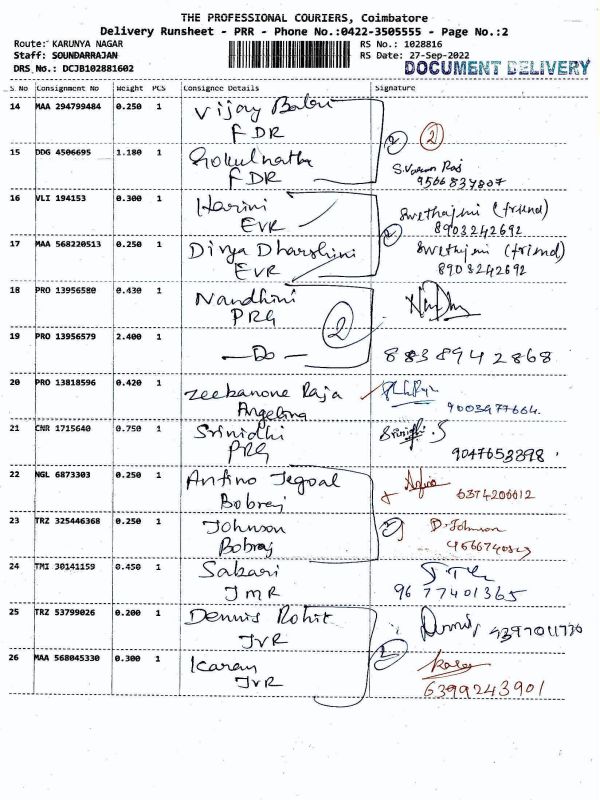 THE PROFESSIONAL COURIERS, Coimbatore
Delivery Runsheet - PRR - Phone No.:0422-3505555 - Page No.:2
Route: KARUNYA NAGAR
RS No.: 1028816
Staff: SOUNDARRAJAN
RS Date: 27-Sep-2022
DRS No.: DCJB102881602
DOCUMENT DELIVERY
S. No Consignment No Weight PCS Consignee Details Signature
14 MAA 294799484 0.250 1 Vijay Balaji
FDR
2 2
15 DDG 4506695 1.180 1 Gokulnath
FDR
S. Varun Raj
9566837807
16 VLI 194153 0.300 1 Harini
EVR
Swethajini (friend)
8903242692
2
17 MAA 568220513 0.250 1 Divya Dharshini
EVR
Swethajini (friend)
8903242692
18 PRO 13956580 0.430 1 Nandhini
PRG
2
19 PRO 13956579 2.400 1 — Do — 8838942868
20 PRO 13818596 0.420 1 Zeebanone Raja
Angelina
9003977664.
21 CNR 1715640 0.750 1 Srinidhi
PRG
Srinidhi. S
9047653898
22 NGL 6873303 0.250 1 Antino Jegoal
Bobraj
6374206612
23 TRZ 325446368 0.250 1 Johnson
Bobraj
D. Johnson
24 TMI 30141159 0.450 1 Sabari
JMR
9677401365
25 TRZ 53799026 0.200 1 Dennis Rohit
JVR
Dennis
2
26 MAA 568045330 0.300 1 Karan
JVR
Karan
6399243901